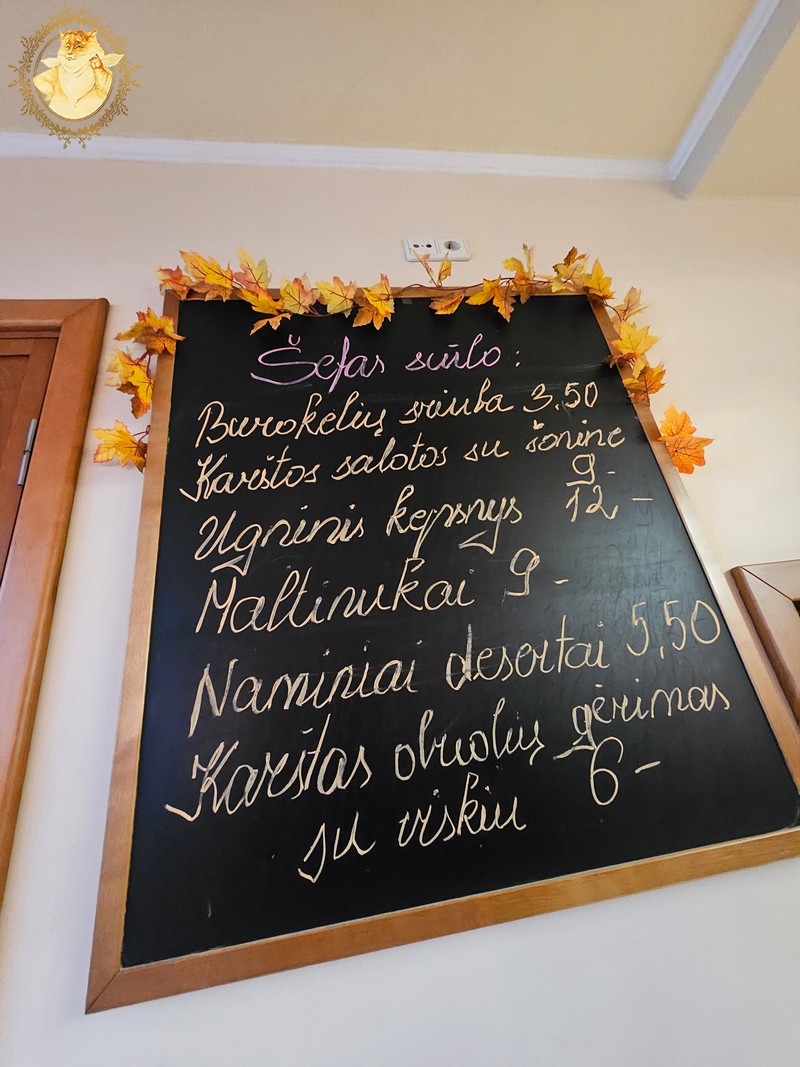 Šefas siūlo:
Burokėlių sriuba 3.50
Karštos salotos su šonine
9-
Ugninis kepsnys 12-
Maltinukai 9-
Naminiai desertai 5,50
Karštas obuolių gėrimas
su viskiu 6-